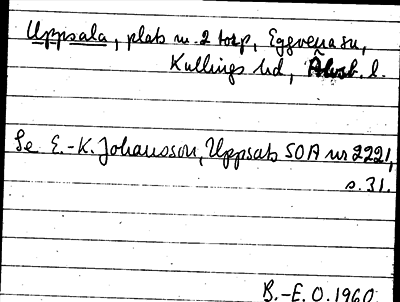 Uppsala, plats m. 2 torp, Eggvena sn,
Kullings hd, Älvsb. l.
Se E.-K. Johansson, Uppsats SOA nr 2221,
s. 31.
B.-E. O. 1960